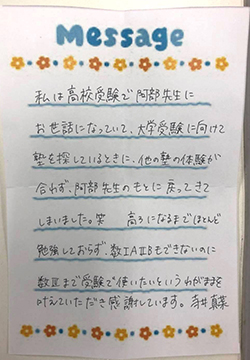 Message
私は高校受験で阿部先生に
お世話になっていて、大学受験に向けて
塾を探しているときに、他の塾の体験が
合わず、阿部先生のもとに戻ってきて
しまいました。笑 高3になるまでほとんど
勉強しておらず、数ⅠAⅡBもできないのに
数Ⅲまで受験で使いたいというわがままを
叶えていただき感謝しています。寺井真菜